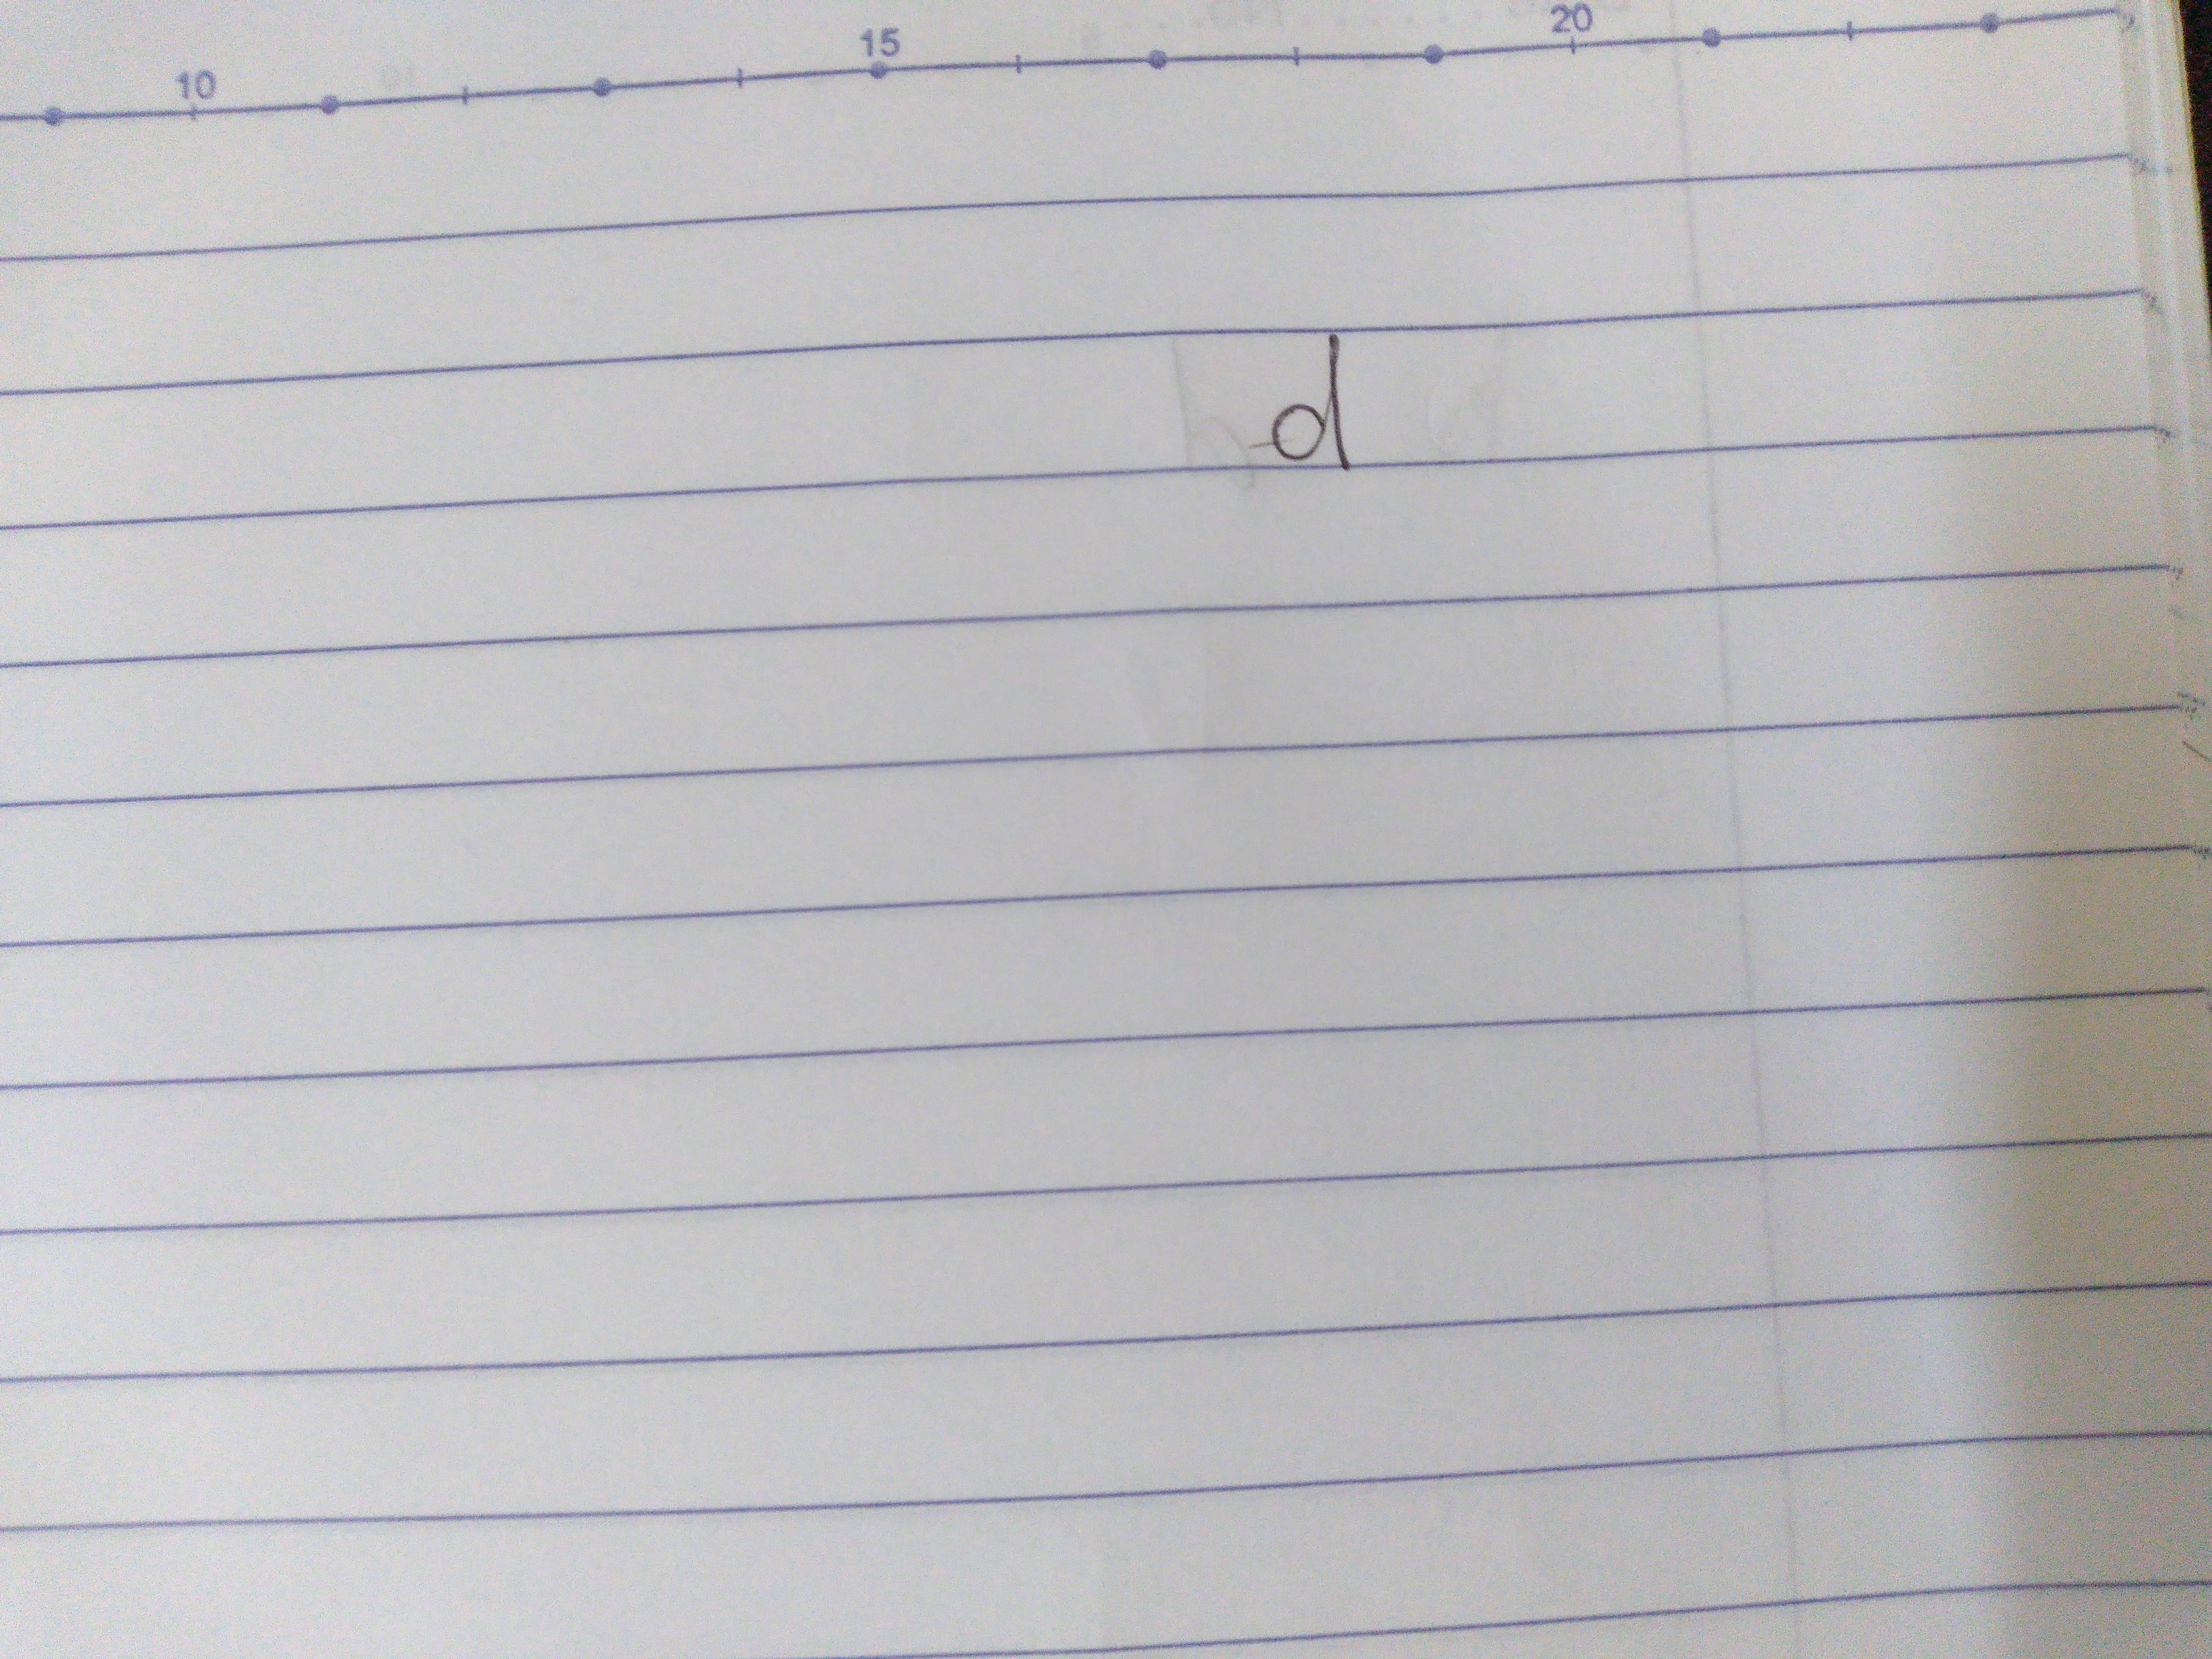 10 15 20
d